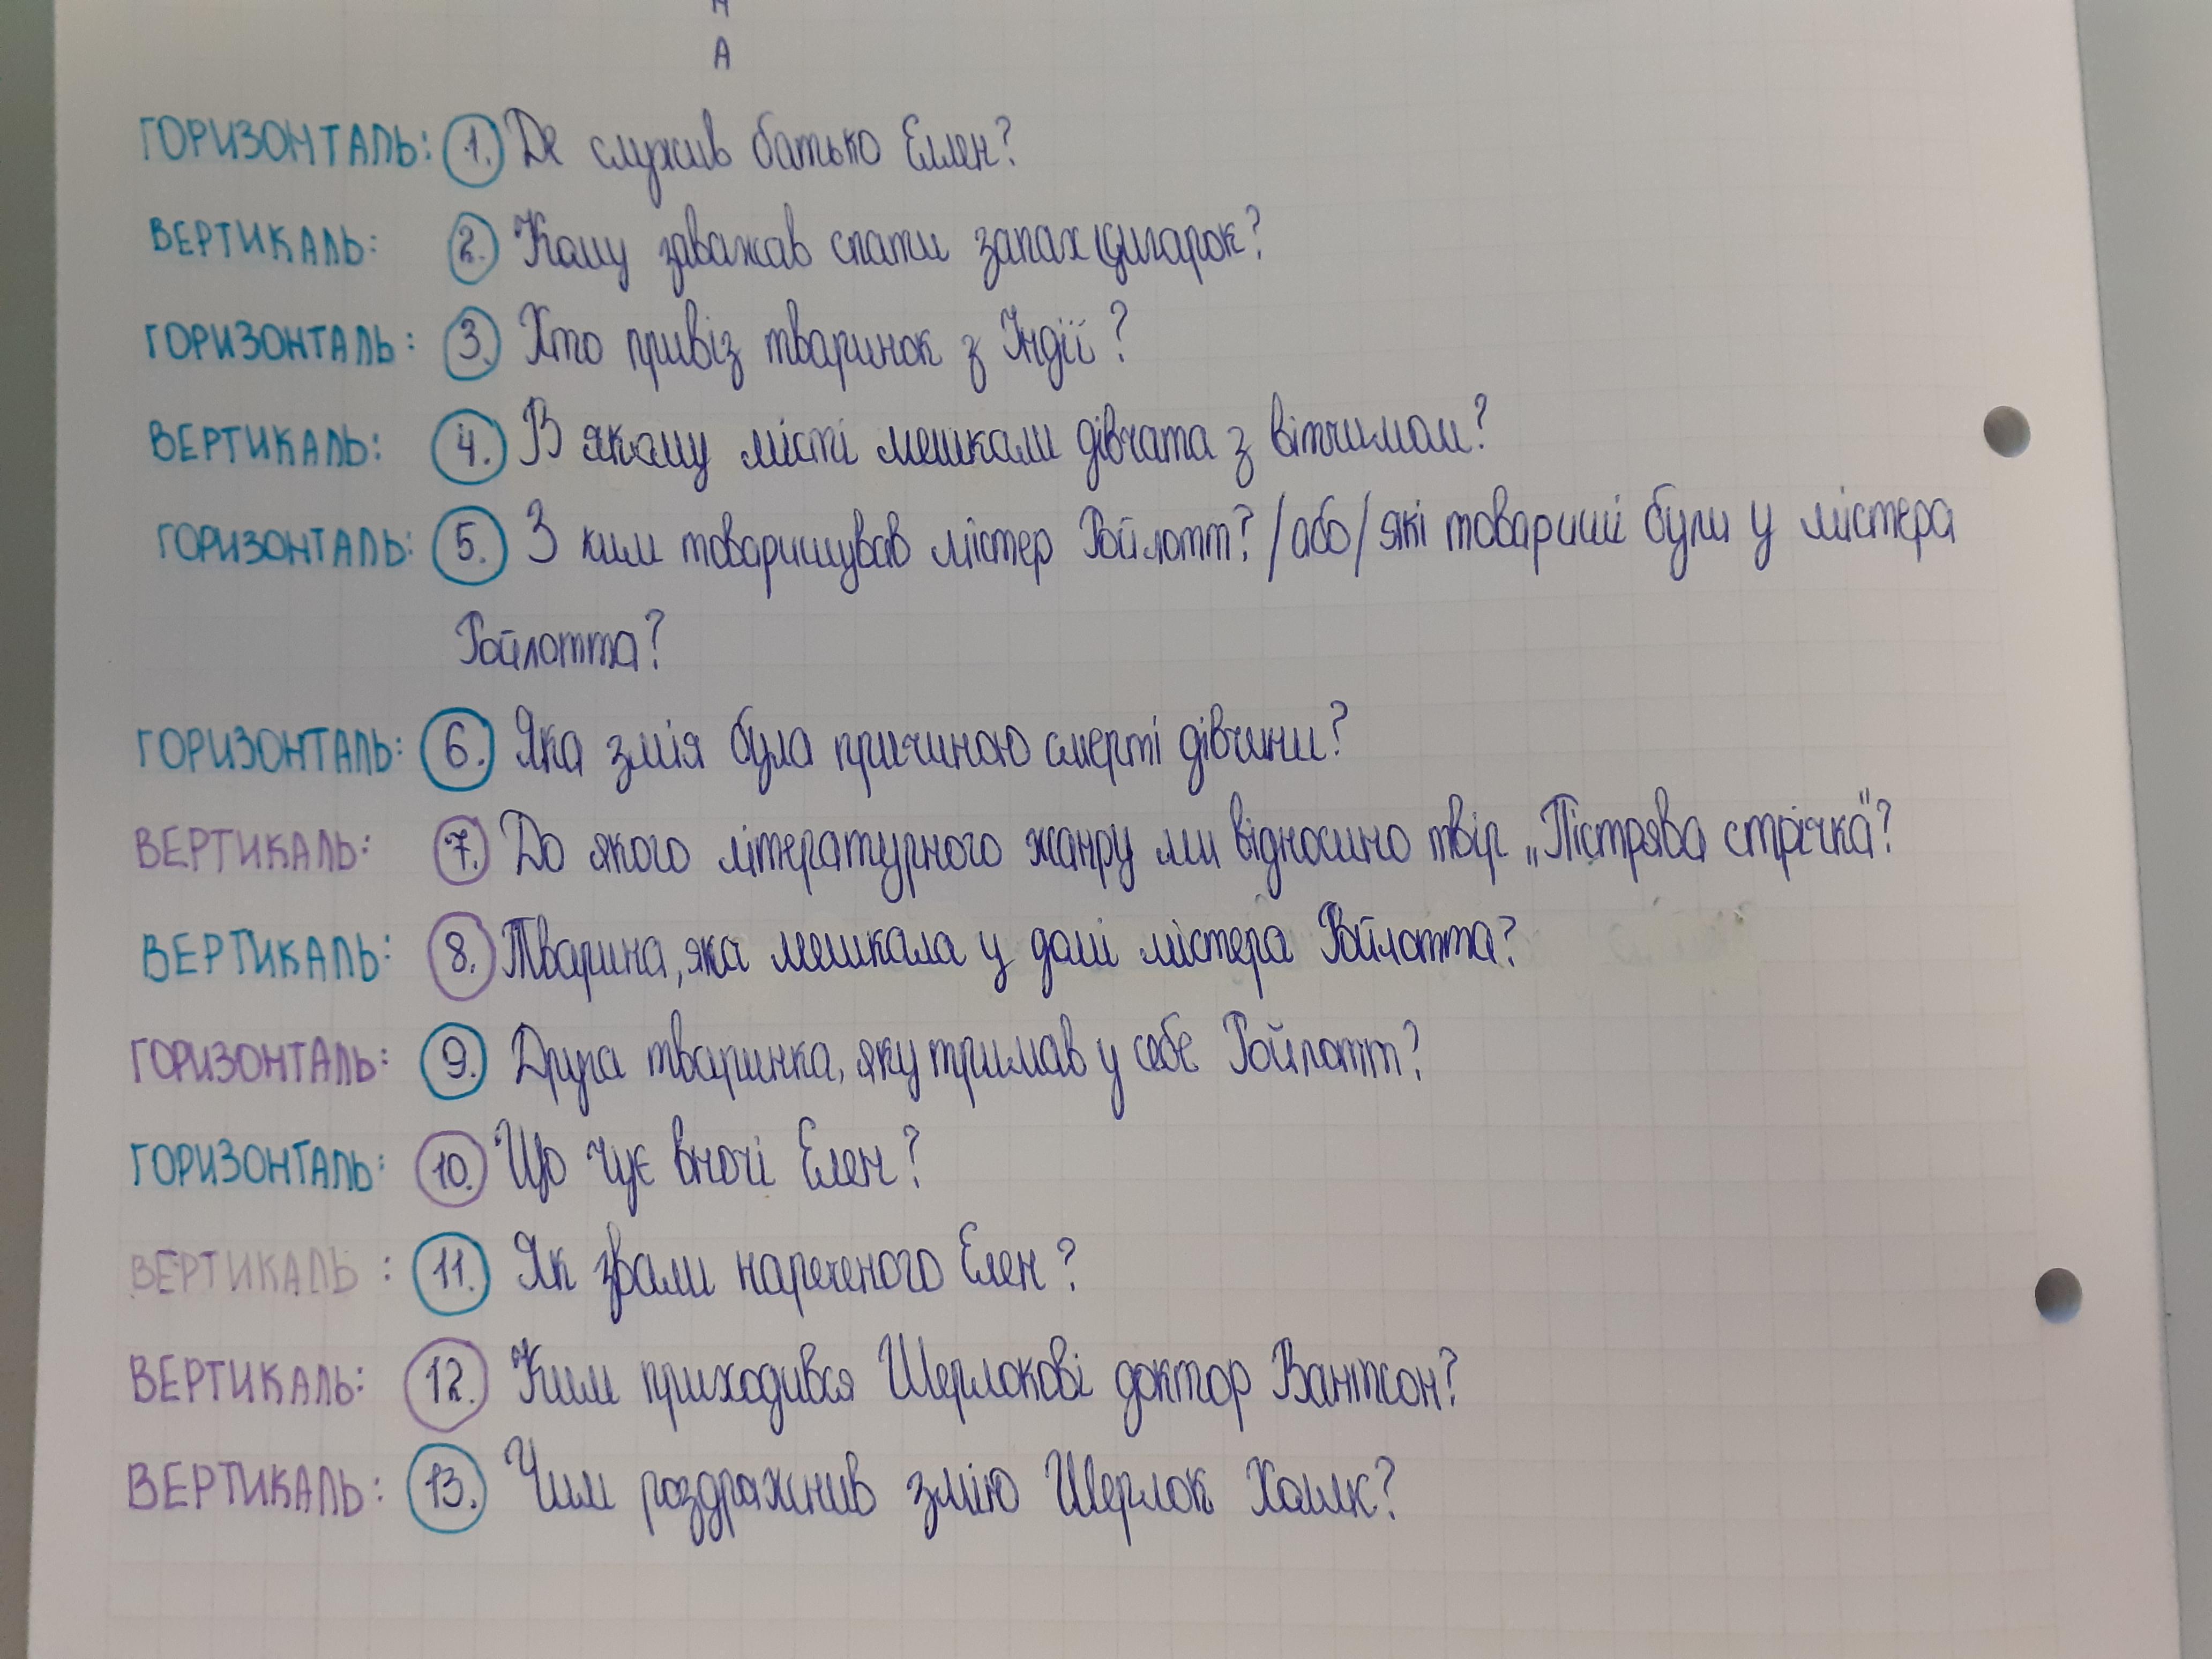 А
ГОРИЗОНТАЛЬ: 1. Де служив батько Еллен?
ВЕРТИКАЛЬ: 2. Кому заважав спати запах цигарок?
ГОРИЗОНТАЛЬ: 3. Хто привіз тваринок з Індії?
ВЕРТИКАЛЬ: 4. В якому місті мешкали дівчата з вітчимом?
ГОРИЗОНТАЛЬ: 5. З ким товаришував містер Ройлотт? /або/ які товариші були у містера
Ройлотта?
ГОРИЗОНТАЛЬ: 6. Яка змія була причиною смерті дівчини?
ВЕРТИКАЛЬ: 7. До якого літературного жанру ми відносимо твір „Пістрява стрічка"?
ВЕРТИКАЛЬ: 8. Тварина, яка мешкала у домі містера Ройлотта?
ГОРИЗОНТАЛЬ: 9. Друга тваринка, яку тримав у себе Ройлотт?
ГОРИЗОНТАЛЬ: 10. Що чує вночі Елен?
ВЕРТИКАЛЬ: 11. Як звали нареченого Елен?
ВЕРТИКАЛЬ: 12. Ким приходився Шерлокові доктор Ватсон?
ВЕРТИКАЛЬ: 13. Чим роздражнив змію Шерлок Холмс?